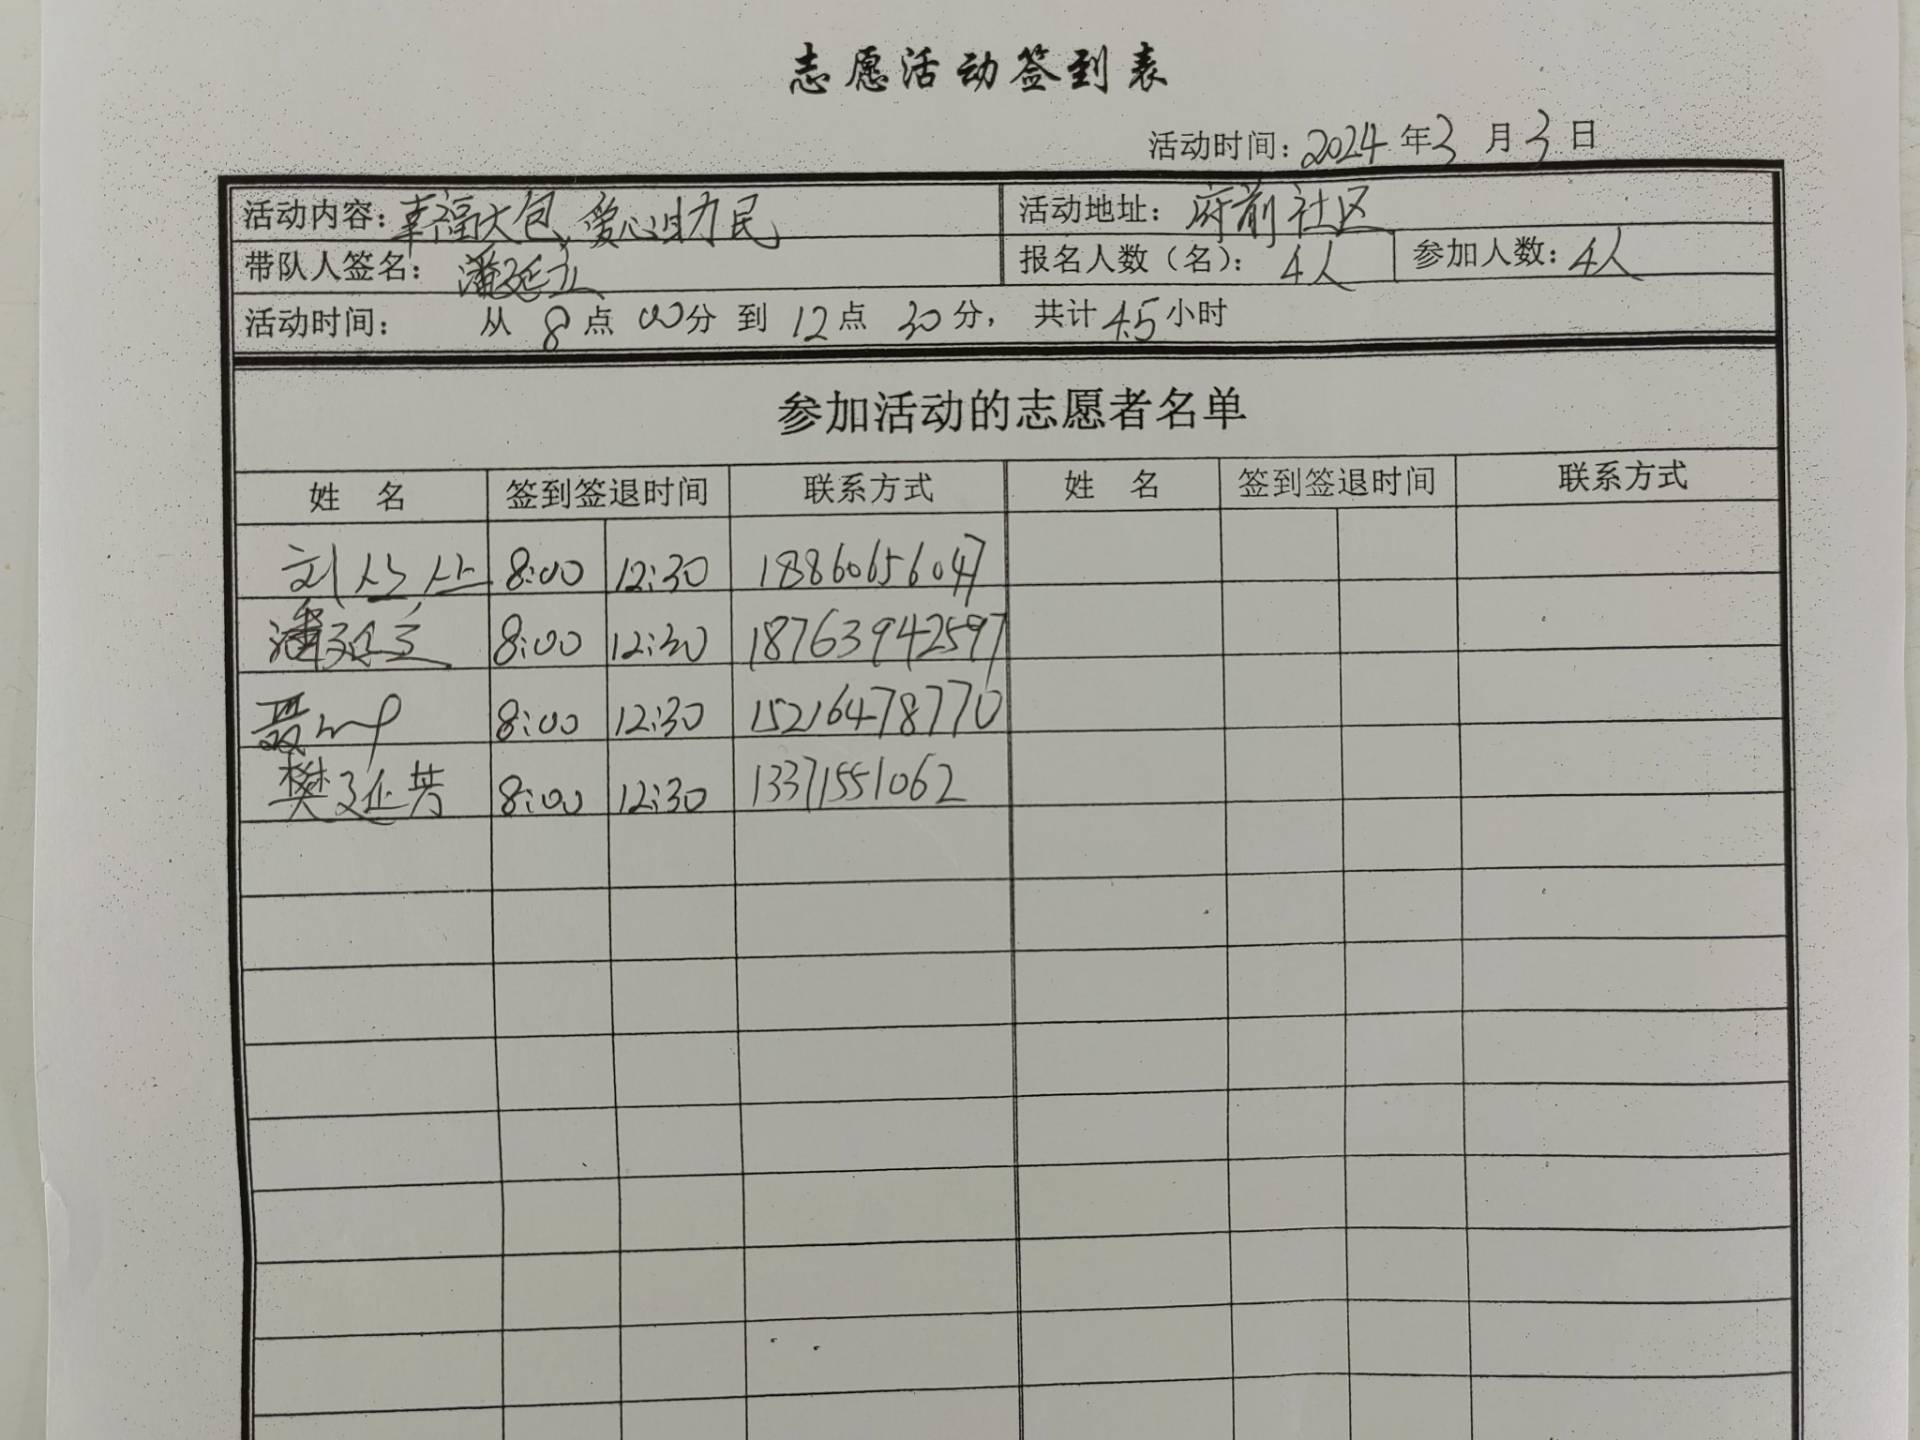 志愿活动签到表
活动时间：2024年3月3日
活动内容：幸福大包，爱心助民 活动地址：府前社区
带队人签名：潘延立 报名人数（名）：4人 参加人数：4人
活动时间： 从8点00分到12点30分， 共计4.5小时
参加活动的志愿者名单
姓 名 签到签退时间 联系方式 姓 名 签到签退时间 联系方式
刘 8:00 12:30 18860656047
潘延立 8:00 12:30 18763942597
聂 8:00 12:30 15216478770
樊延芳 8:00 12:30 13371551062